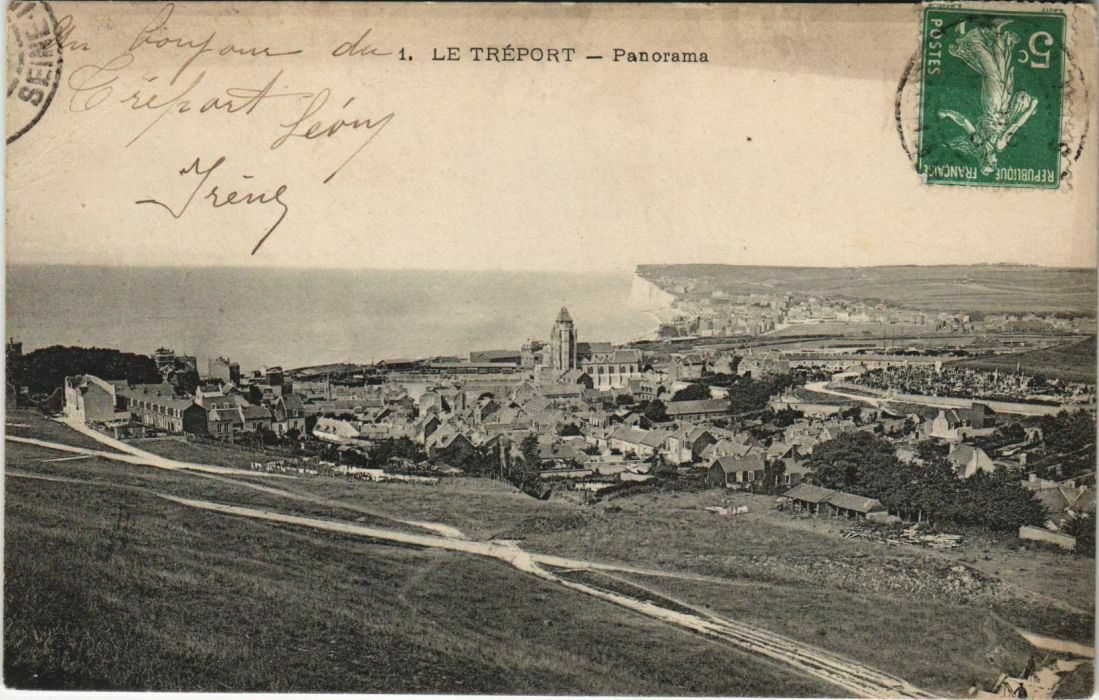 Un bonjour du
Tréport Léon
Irène
1. LE TRÉPORT — Panorama
SEINE-I
POSTES
5c
RÉPUBLIQUE FRANÇAISE